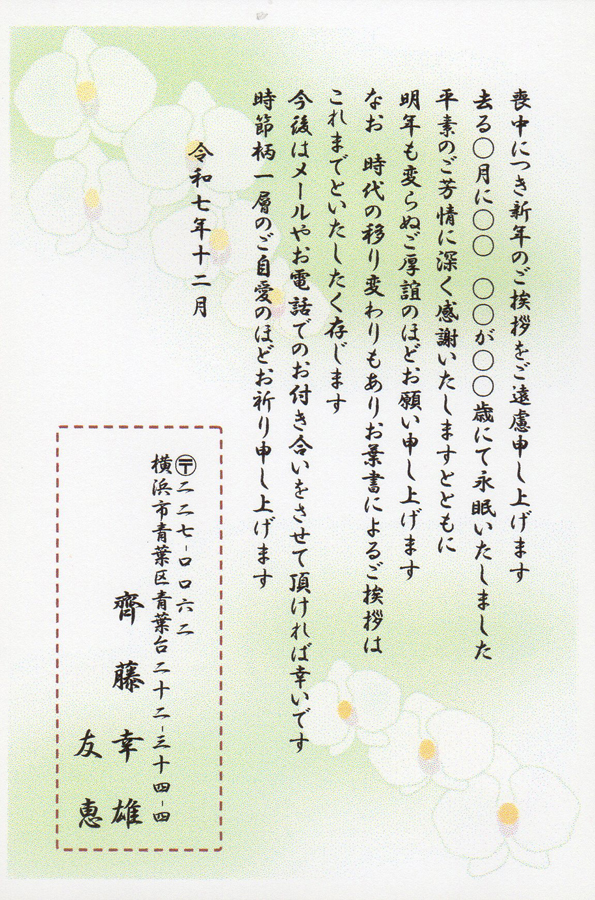 喪中につき新年のご挨拶をご遠慮申し上げます
去る〇月に〇〇　〇〇が〇〇歳にて永眠いたしました
平素のご芳情に深く感謝いたしますとともに
明年も変らぬご厚誼のほどお願い申し上げます
なお　時代の移り変わりもありお葉書によるご挨拶は
これまでといたしたく存じます
今後はメールやお電話でのお付き合いをさせて頂ければ幸いです
時節柄一層のご自愛のほどお祈り申し上げます
令和七年十二月
〒二二七-〇〇六二
横浜市青葉区青葉台二十二-三十四-四
齊藤幸雄
友恵